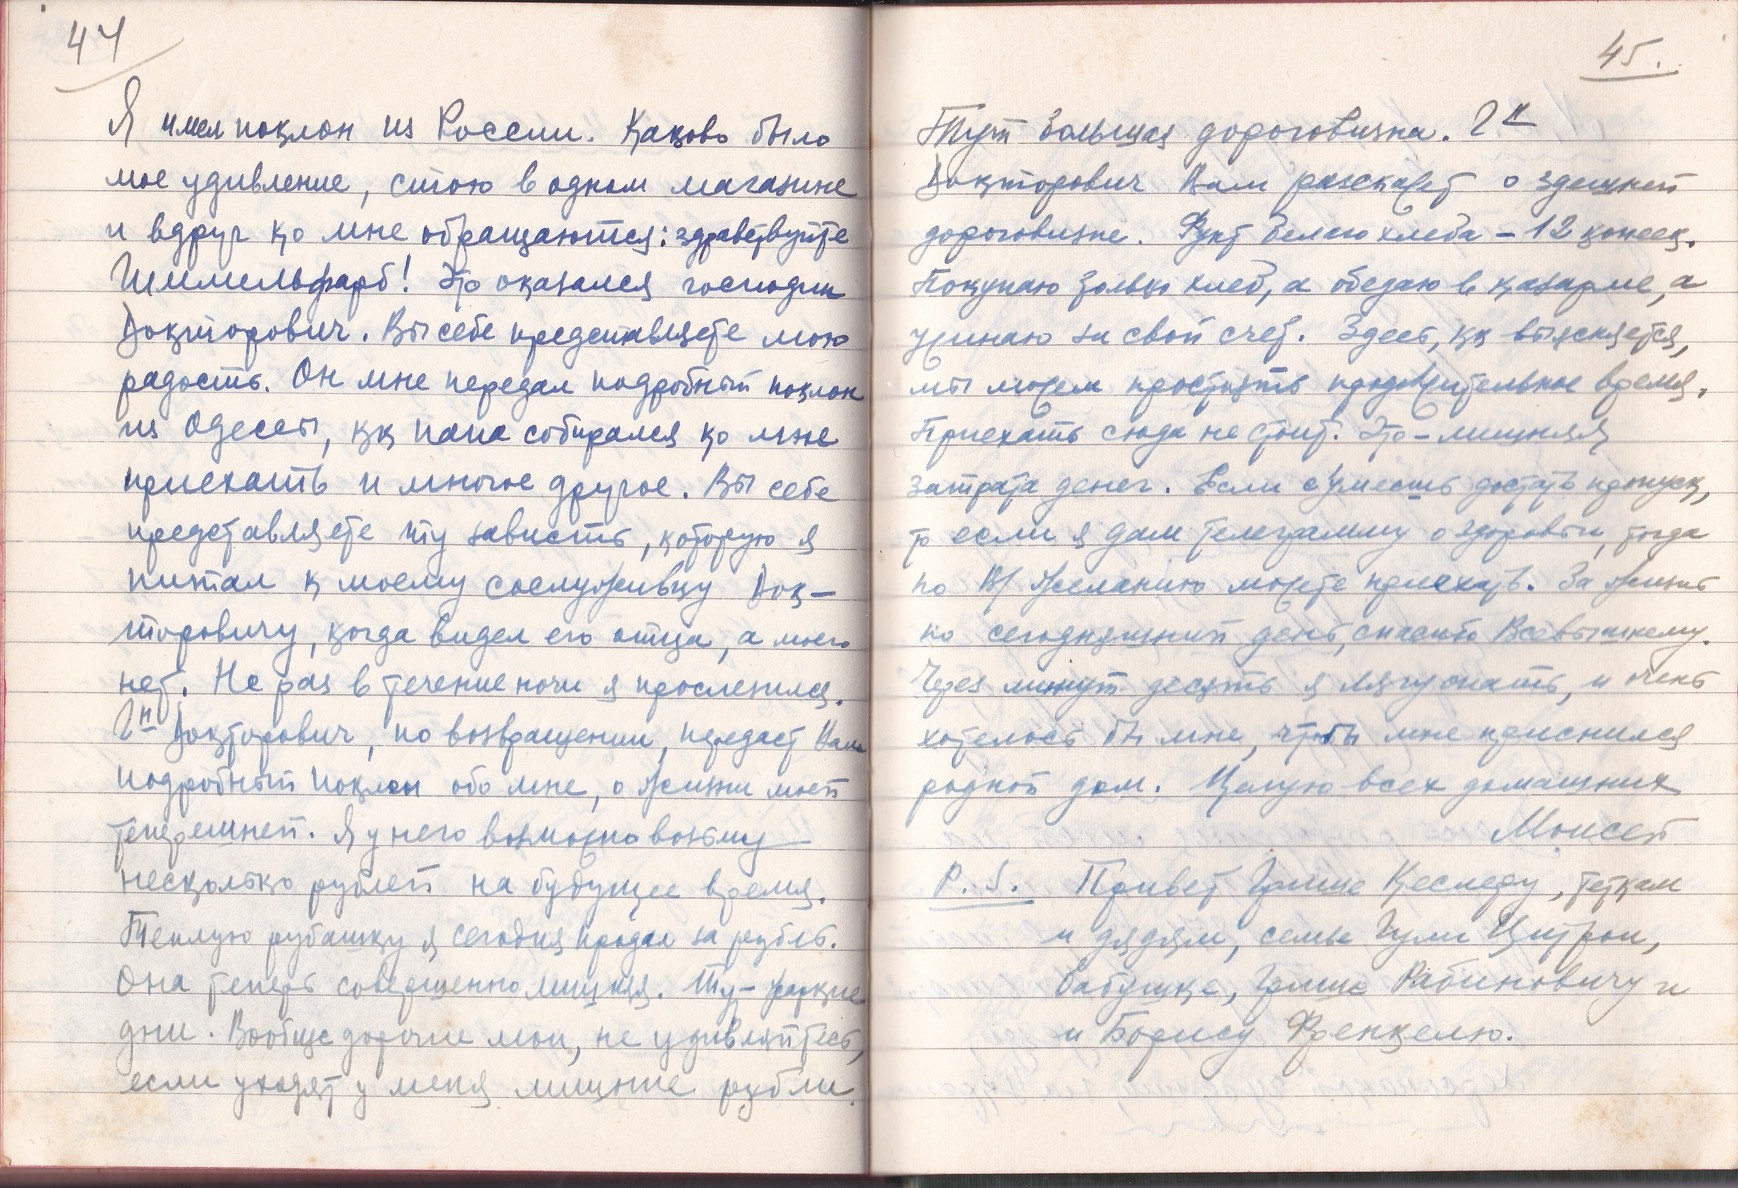 44
Я имел поклон из России. Каково было
мое удивление, стою в одном магазине
и вдруг ко мне обращаются: здравствуйте
Шимельфарб! Это оказался господин
Докторович. Вы себе представляете мою
радость. Он мне передал подробный поклон
из Одессы, кк папа собирался ко мне
приехать и многое другое. Вы себе
представляете ту зависть, которую я
питал к моему сослуживцу Док-
торовичу, когда видел его отца, а моего
нет. Не раз в течение ночи я прослезился.
Гн Докторович, по возвращении, передаст Вам
подробный поклон обо мне, о жизни моей
теперешней. Я у него возможно возьму
несколько рублей на будущее время.
Теплую рубашку я сегодня продал за рубль.
Она теперь совершенно лишняя. Тут жаркие
дни. Вообще дорогие мои, не удивляйтесь,
если уходят у меня лишние рубли.
45.
Тут большая дороговизна. Гн
Докторович Вам расскажет о здешней
дороговизне. Фунт белого хлеба – 12 копеек.
Покупаю только хлеб, а обедаю в казарме, а
ужинаю за свой счет. Здесь, кк выясняется,
мы можем простоять продолжительное время.
Приехать сюда не стоит. Это – лишняя
затрата денег. Если сумеешь достать пропуск,
то если я дам телеграмму о здоровьи, тогда
по желанию можете приехать. За жизнь
по сегодняшний день, спасибо Всевышнему.
Через минут десять я лягу спать, и очень
хотелось бы мне, чтобы мне приснился
родной дом. Целую всех домашних
Моисей
P.S. Привет Грише Кеслеру, теткам
и дядям, семье Гули Цитрон,
бабушке, Грише Рабиновичу и
и Борису Френкелю.